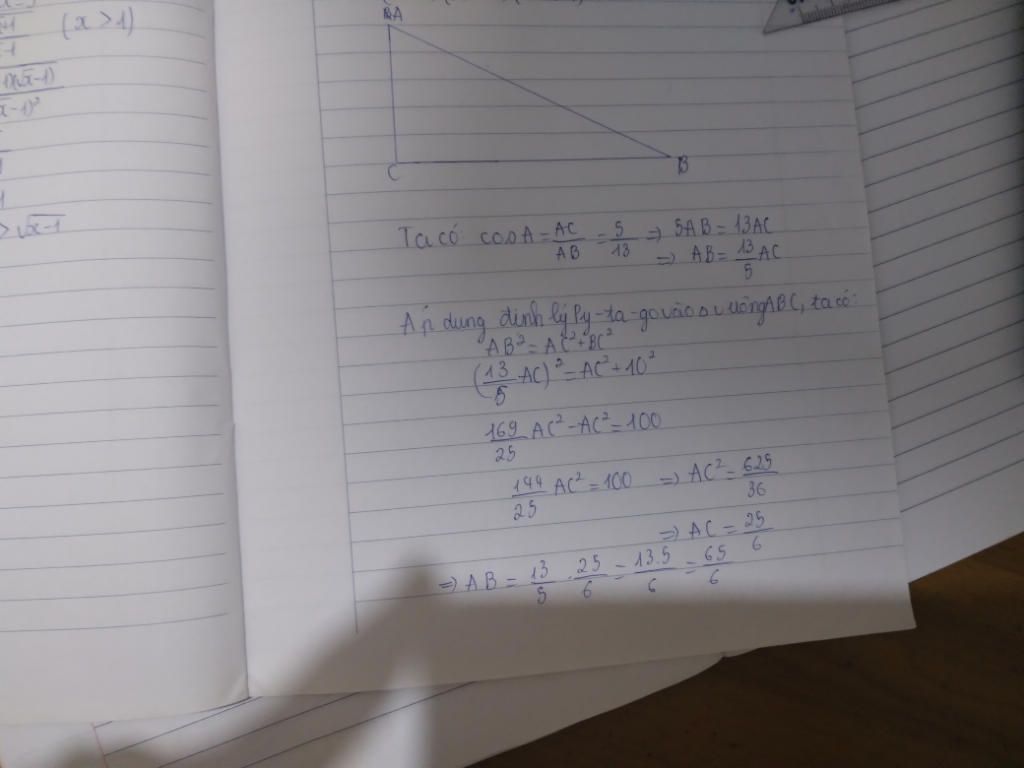 (x > 1)
√x-1
A
C
B
Ta có: cosA = AC/AB = 5/13 => 5AB = 13AC
=> AB = 13/5 AC
Áp dụng định lý Py-ta-go vào Δ vuông ABC, ta có:
AB² = AC² + BC²
(13/5 AC)² = AC² + 10²
169/25 AC² - AC² = 100
144/25 AC² = 100 => AC² = 625/36
=> AC = 25/6
=> AB = 13/5 . 25/6 = 13.5/6 = 65/6